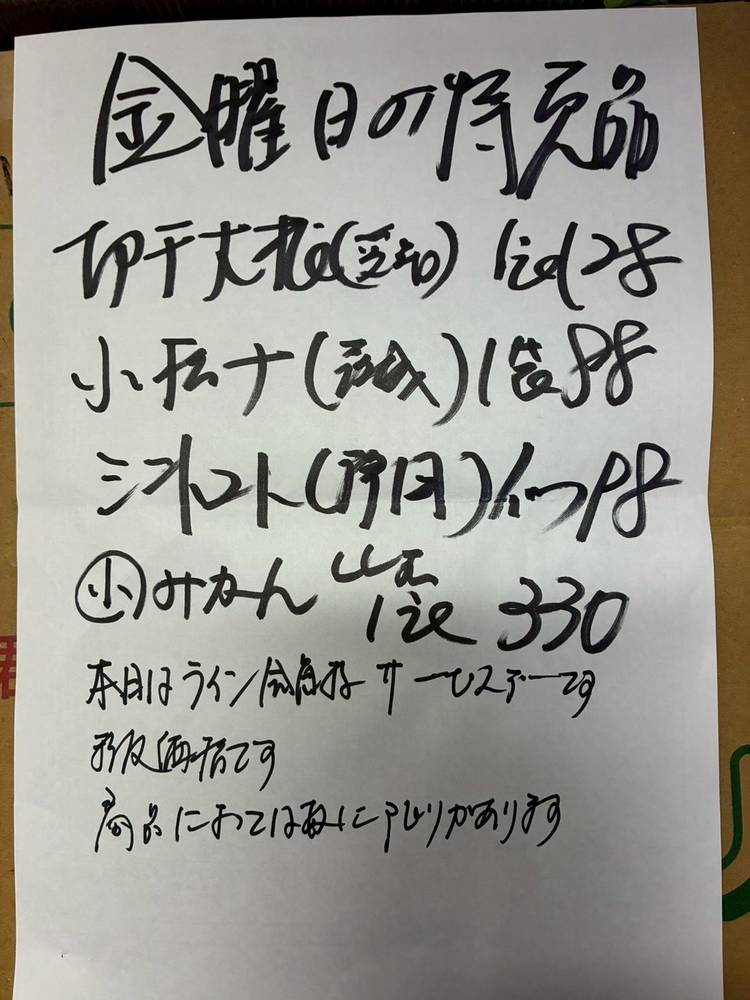 金曜日の特売品
切干大根(愛知) 1袋128
小松菜(茨城)1袋88
ミニトマト(静岡)1パック198
小みかん 1袋 330
本日はライン会員様サービスデーです
税抜価格です
商品によっては数に限りがあります